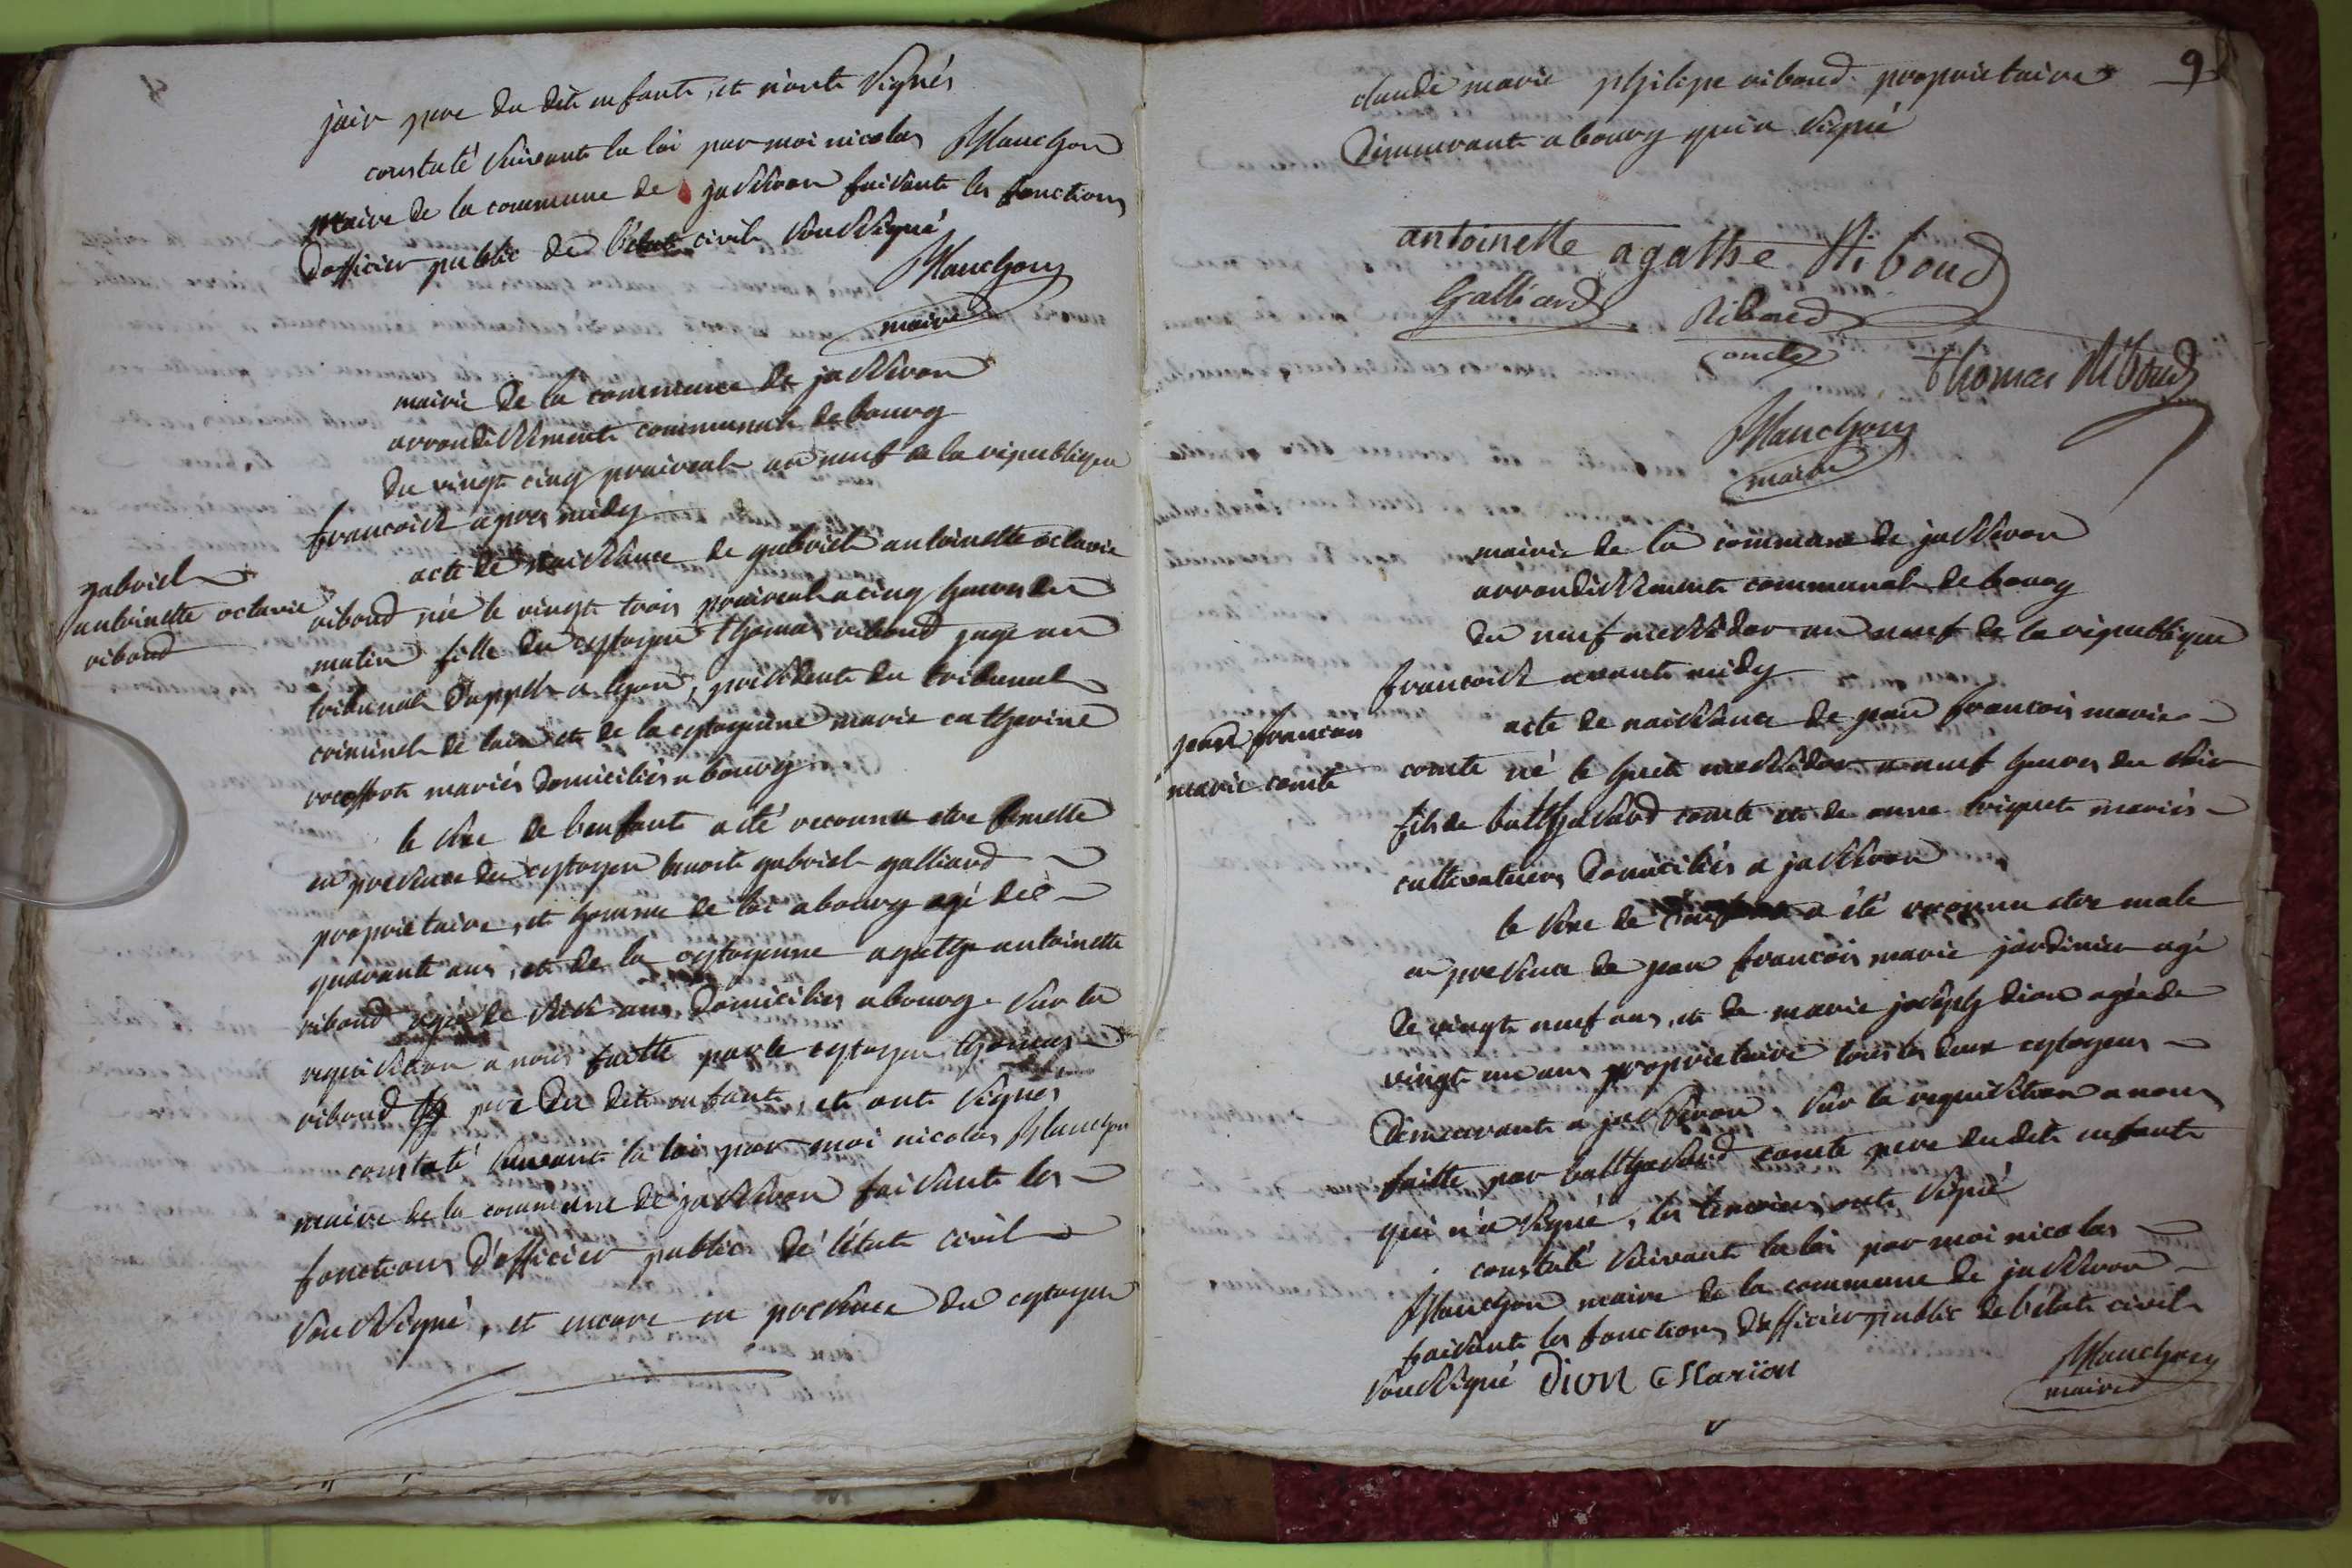 jair pere du dit enfant, et n'ont signés
constaté suivant la loi par moi nicolas Manchon
maire de la commune de jasseron faisant les fonctions
d'officier public de l'état civil soussigné
Manchon
maire
mairie de la commune de jasseron
arrondissement communal de bourg
du vingt cinq prairial an neuf de la republique
francoise apres midy
gabriel
antoinette octavie
riboud
acte de naissance de gabriel antoinette octavie
riboud née le vingt trois prairial a cinq heures du
matin fille du cytoyen thomas riboud juge au
tribunal d'appel a lyon, président du tribunal
criminel de lain et de la cytoyenne marie catherine
rocoffort mariés domiciliés a bourg
le sexe de l'enfant a été reconnu etre femelle
en presence du cytoyen benoit gabriel galliard
proprietaire, et homme de loi a bourg agé de
quarante ans, et de la cytoyenne agathe antoinette
riboud agée de seize ans, domiciliés a bourg. sur la
requisition a nous faitte par le cytoyen thomas
riboud pere du dit enfant, et ont signés
constaté suivant la loi par moi nicolas Manchon
maire de la commune de jasseron faisant les
fonctions d'officier public de l'état civil
soussigné, et encore en presence du cytoyen
9
claude marie philipe riboud proprietaire
demeurant a bourg qui a signé
antoinette agathe Riboud
Galliard
Riboud
oncle
thomas Riboud
Manchon
maire
mairie de la commune de jasseron
arrondissement communal de bourg
du neuf messidor an neuf de la république
francoise avant midy
jean francois
marie comte
acte de naissance de jean francois marie
comte né le huit messidor a neuf heures du soir
fils de balthasard comte et de anne briquet mariés
cultivateurs domiciliés a jasseron
le sexe de l'enfant a été reconnu etre male
en presence de jean francois marie jardinier agé
de vingt neuf ans, et de marie joseph dion agée de
vingt un ans proprietaire tous les deux cytoyens
demeurant a jasseron. sur la requisition a nous
faitte par balthasard comte pere du dit enfant
qui n'a signé, les temoins ont signé
constaté suivant la loi par moi nicolas
Manchon maire de la commune de jasseron
faisant les fonctions d'officier public de l'état civil
soussigné Dion Marion
Manchon
maire